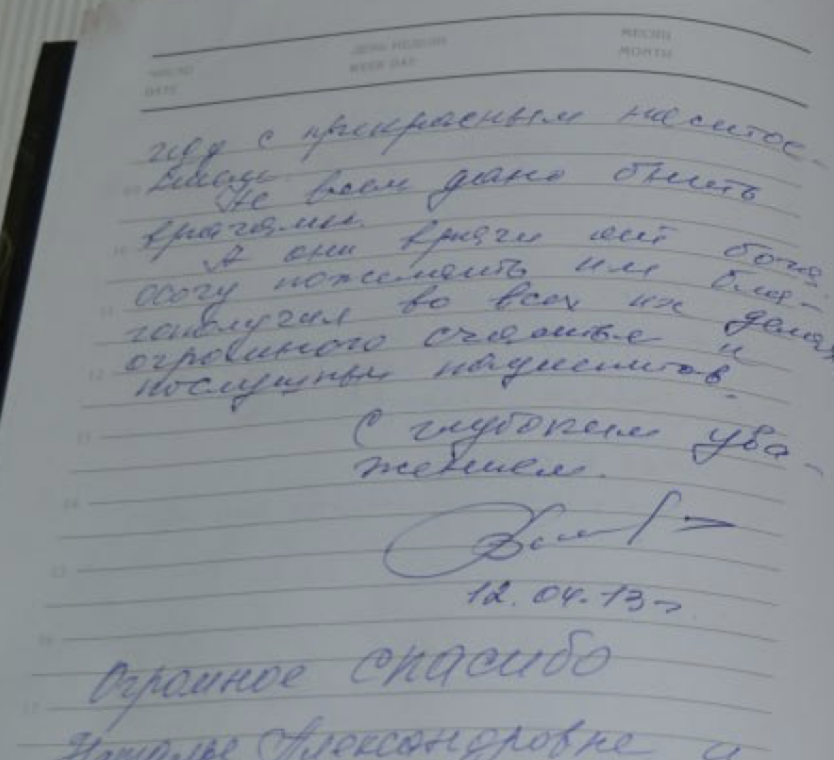 ЧИСЛО ДЕНЬ НЕДЕЛИ МЕСЯЦ
DATE WEEK DAY MONTH
с прекрасным
Не всем дано быть
врачами.
А они врачи от бога
хочу пожелать им бла-
гополучия во всех их делах
огромного счастья и
послушных пациентов.
С глубоким ува-
жением.
12.04.13г
Огромное спасибо
Наталье Александровне и